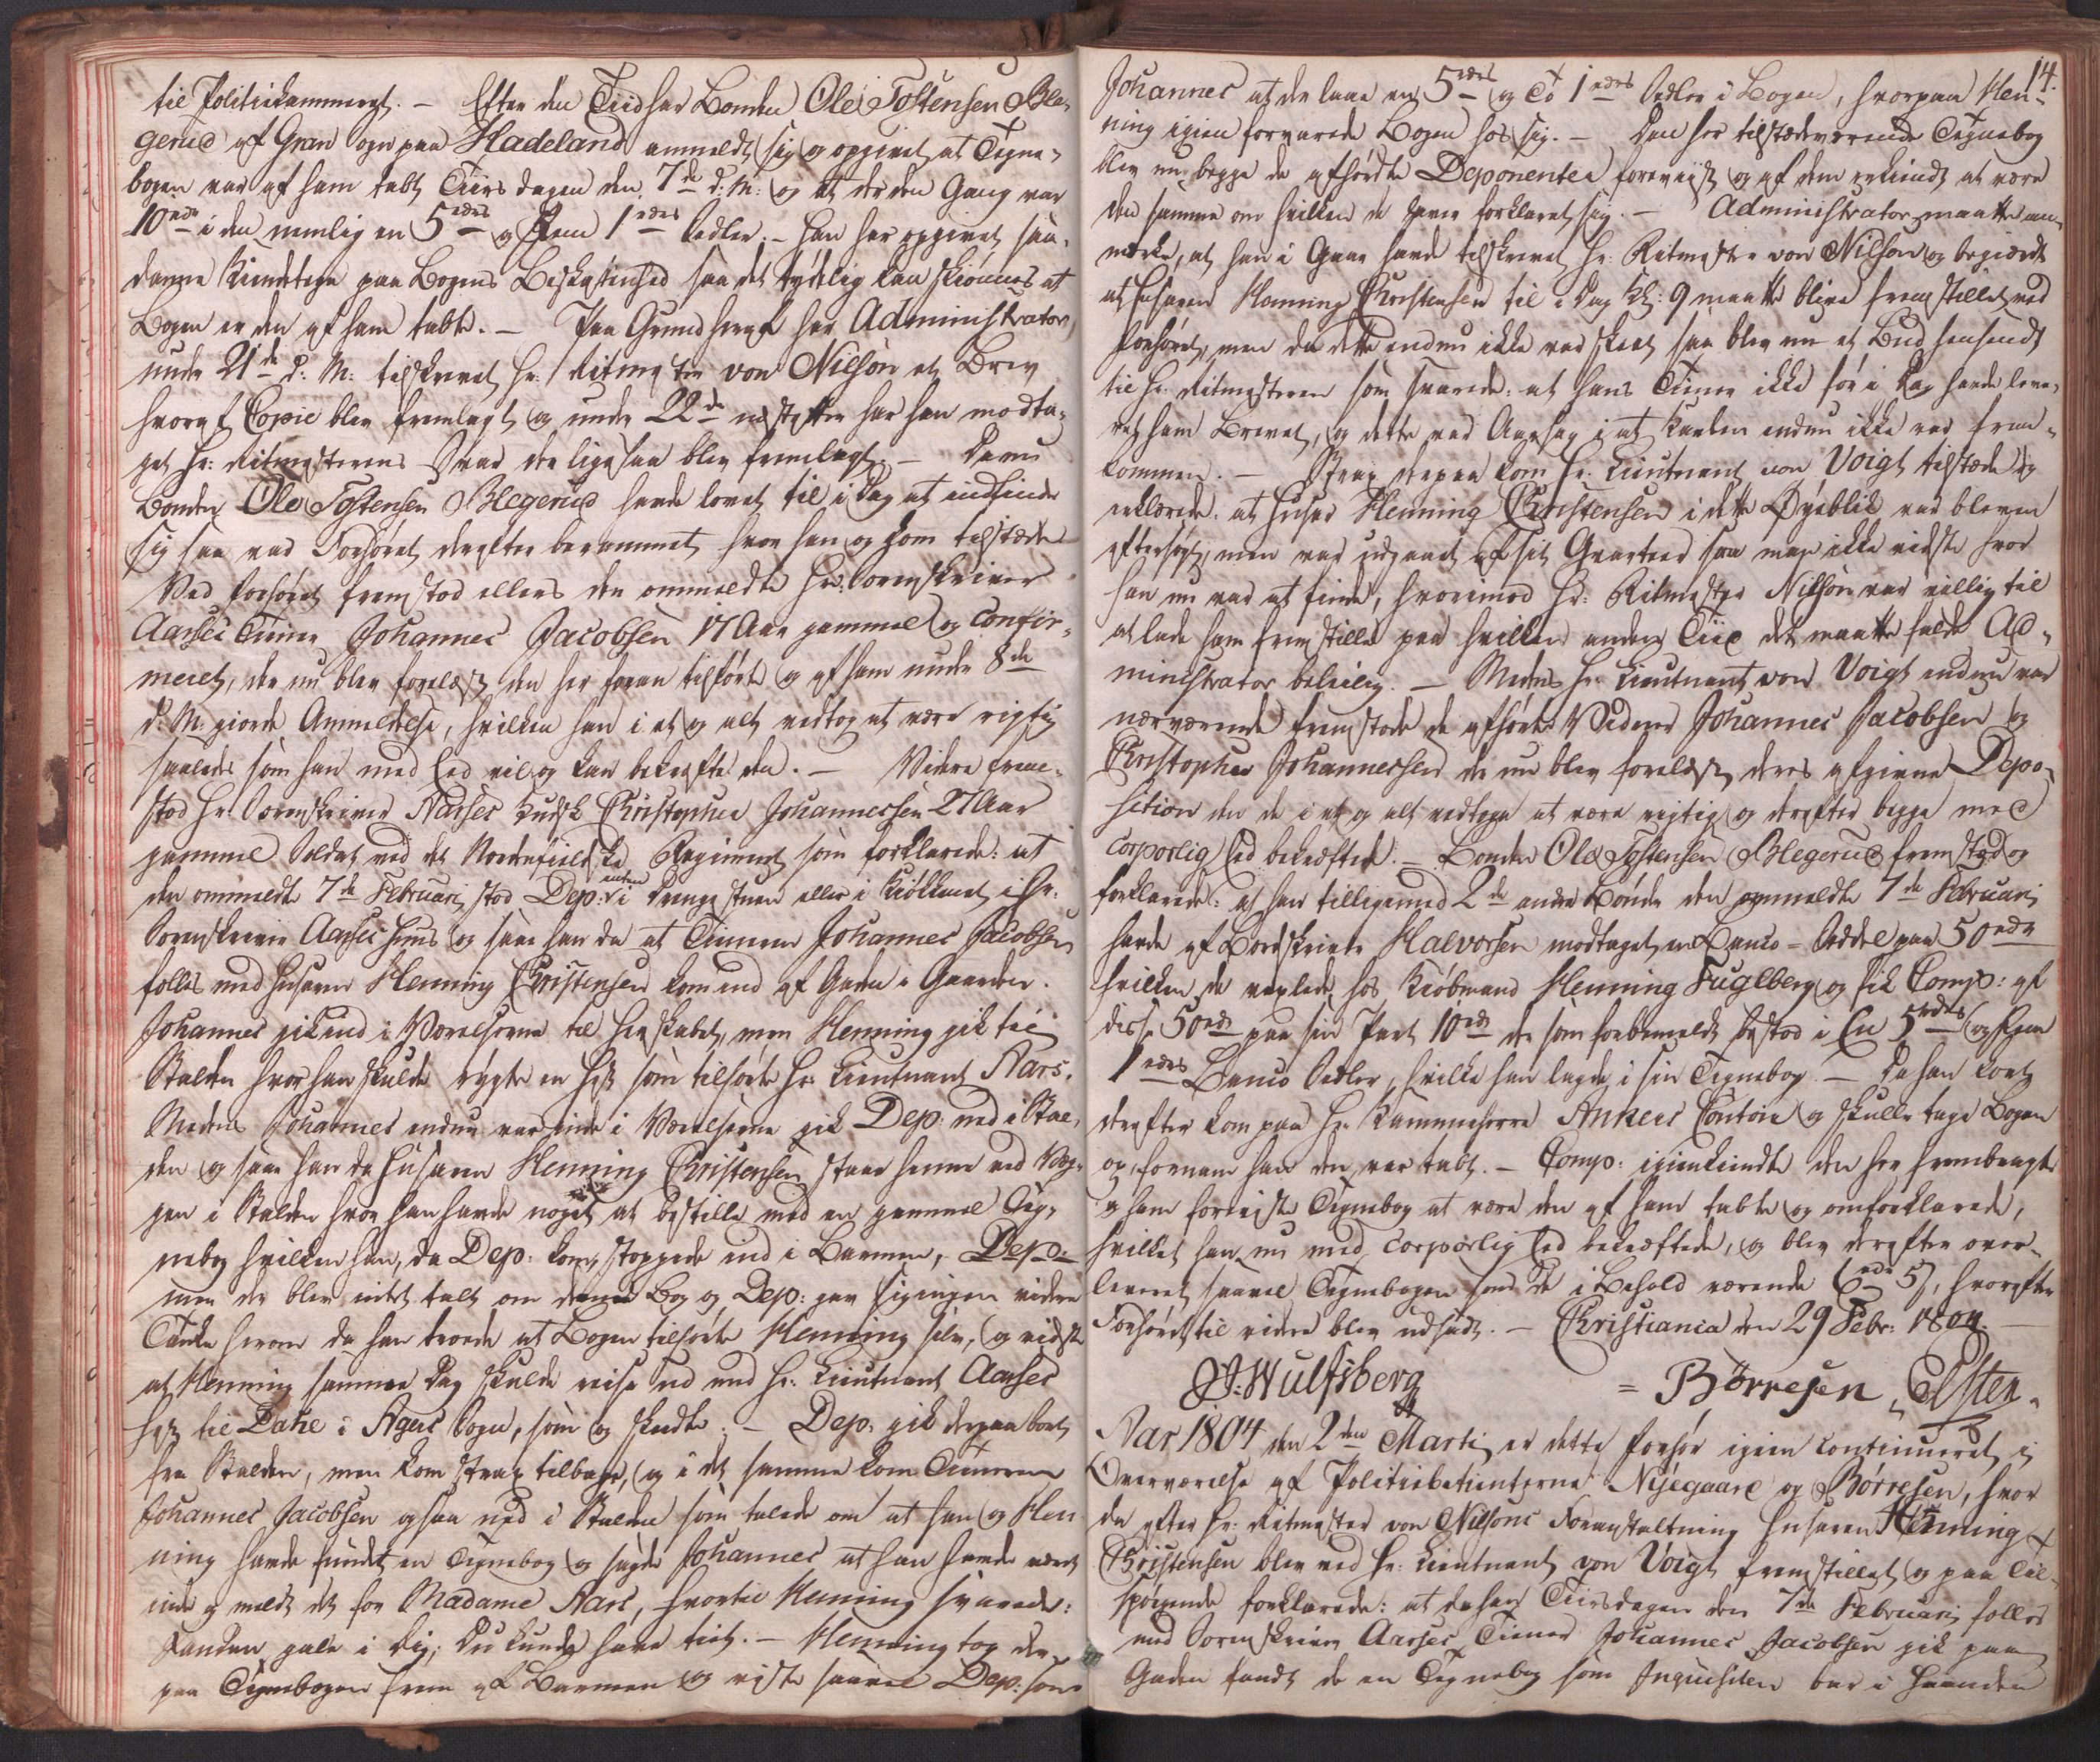 til Politiekammeret. – Efter den Tiid har Bonden Ole Tostensen Ble-
gerud af Gran Sogn paa Hadeland anmeldt sig og opgivet, at Tegne-
bogen var af ham tabt Tiirsdagen den 7de d: M: og at der den Gang var
10 rdr i den nemlig en 5 rdrs og Fem 1 rdrs Sedler. – Han har opgivet saa-
danne Kiendetegn paa Bogens Beskaffenhed saa det tydelig kan skiønnes at
Bogen er den af ham tabte. – Paa Grund heraf har Administrator
under 21de d: M: tilskrevet Hr: Ritmester von Nilson et Brev
hvoraf Copie blev fremlagt og under 22de næstefter har han modta-
get Hr: Ritmesterens Svar der ligesaa blev fremlagt. – Da nu
Bonden Ole Tostensen Blegerud havde lovet til i Dag at indfinde
sig saa var Forhøret derefter berammet hvor han og kom tilstæde
Ved Forhøret fremstod ellers den ommeldte Hr: Sorenskriver
Aarses Tiener Johannes Jacobsen 17 Aar gammel og Confir-
meret, der nu blev forelæst den her foran tilførte og af ham under 8de
d: M: giorde Anmeldelse, hvilken han i et og alt vedtog at være rigtig
saaledes som han med Eed vil og kan bekræfte den. – Videre frem-
stod Hr: Sorenskriver Aarses Kudsk Christopher Johannessen 27 Aar
gammel Soldat ved det Nordenfieldske Regiment som forklarede: at
den ommeldte 7de Februarii stod Dep: enten i Drengestuen eller i Kiøkkenet i Hr:
Sorenskriver Aarses Huus og saae han da at Tieneren Johannes Jacobsen
følles med Husaren Henning Christensen kom ind af Gaden i Gaarden.
Johannes gik ind i Værelserne til Herskabet, men Henning gik til
Stalden hvor han skulde rygte en Hest som tilhørte Hr: Lieutnant Aars.
Medens Johannes endnu var inde i Værelserne gik Dep: ned i Stal-
den og saae han da Husaren Henning Christensen staae henne ved Væg-
gen i Stalden hvor han havde noget at bestille med en gammel Teg-
nebog hvilken han, da Dep: kom, stoppede ind i Barmen, Dep:
men der blev intet talt om denne Bog og Dep: gav sig ingen videre
Tanke herom da han troede at Bogen tilhørte Henning selv, og vidste
at Henning samme Dag skulde reise ud med Hr: Lieutnant Aarses
Hest til Bakke i Agers Sogn, som og skeedte. – Dep: gik derpaa bort
fra Stalden, men kom strax tilbage, og i det samme kom Tieneren
Johannes Jacobsen ogsaa ned i Stalden som talede om at han og Hen-
ning havde fundet en Tegnebog og sagde Johannes at han havde været
inde og meldt det for Madame Aars, hvortil Henning svarede:
Fanden gale i Dig, Du kunde have tiet. – Henning tog der-
paa Tegnebogen frem af Barmen og viste saavel Dep: som
14.
Johannes at der laae en 5 rdrs og To 1 rdrs Sedler i Bogen, hvorpaa Hen-
ning igien forvarede Bogen hos sig. – Den her tilstædeværende Tegnebog
blev nu begge de afhørte Deponenter foreviist og af dem erkiendt at være
den samme om hvilken de have forklaret sig. – Administrator maatte an-
mærke, at han i Gaar havde tilskrevet Hr: Ritmester von Nilson og begiært
at Husaren Henning Christensen til i Dag Kl: 9 maatte blive fremstillet ved
Forhøret, men da dette endnu ikke var skeet saa blev nu et Bud hensendt
til Hr: Ritmesteren som svarede: at hans Tiener ikke før i Dag havde leve-
ret ham Brevet, og dette var Aarsag i at Karlen endnu ikke var frem-
kommen. – Strax derpaa kom Hr: Lieutnant von Voigt tilstæde og
erklærede: at Husar Henning Christensen i dette Øyeblik var bleven
eftersøgt, men var udgaaet af sit Qvarteer saa man ikke vidste hvor
han nu var at finde, hvorimod Hr: Ritmester Nilson var villig til
at lade ham fremstille paa hvilken anden Tiid det maatte falde Ad-
ministrator beleilig. – Medens Hr: Lieutnant von Voigt endnu var
nærværende fremstode de afhørte Vidner Johannes Jacobsen og
Christopher Johannessen der nu blev forelæst deres afgivne Depo-
sition den de i et og alt vedtoge at være rigtig og derefter begge med
corporlig Eed bekræftede. – Bonden Ole Tostensen Blegerud fremstod og
forklarede: at han tilligemed 2de andre Bønder den ommeldte 7de Februarii
havde af Bordskriver Halvorsen modtaget en Banco-Seddel paa 50 rdr
hvilken de vexlede hos Kiøbmand Henning Fuglberg og fik Comp: af
disse 50 rdr paa sin Part 10 rdr der som forbemeldt bestod i En 5 rdrs og Fem
1 rdrs Banco Sedler, hvilke han lagde i sin Tegnebog. – Da han kort
derefter kom paa Hr: Kammerherre Ankers Contoir og skulle tage Bogen
op, fornam han den var tabt. – Comp: igienkiendte den her frembragte
og ham foreviste Tegnebog at være den af ham tabte og omforklarede,
hvilket han nu med corporlig Eed bekræftede, og blev derefter over-
leveret saavel Tegnebogen som de i Behold værende (rdr 5), hvorefter
Forhøret til videre blev udsadt. – Christiania den 29 Febr: 1804.
J: Wulfsberg = Börresen „ Elsten.
Aar 1804 den 2den Martii er dette Forhør igien continueret i
Overværelse af Politiebetienterne Nyegaard og Börresen, hvor
da efter Hr: Ritmester von Nilsons Foranstaltning Husaren Henning
Christensen blev ved Hr: Lieutnant von Voigt fremstillet og paa Til-
spørgende forklarede: at da han Tiirsdagen den 7de Februarii følles
med Sorenskriver Aarses Tiener Johannes Jacobsen gik paa
Gaden fandt de en Tegnebog som Inquisiten bar i Haanden